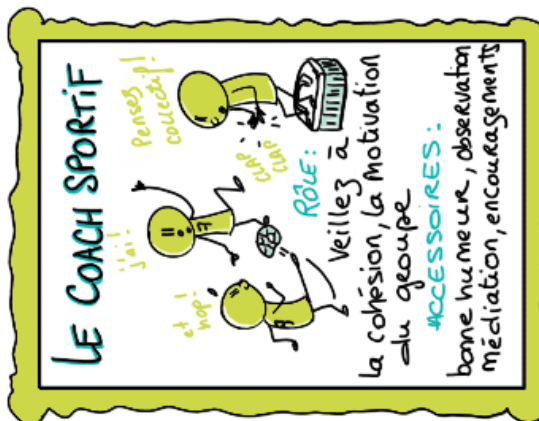 LE COACH SPORTIF
et hop!
j'ai!
Pensez
collectif!
CLAP
CLAP
RÔLE:
Veillez à
la cohésion, la motivation
du groupe
ACCESSOIRES:
bonne humeur, observation
médiation, encouragements